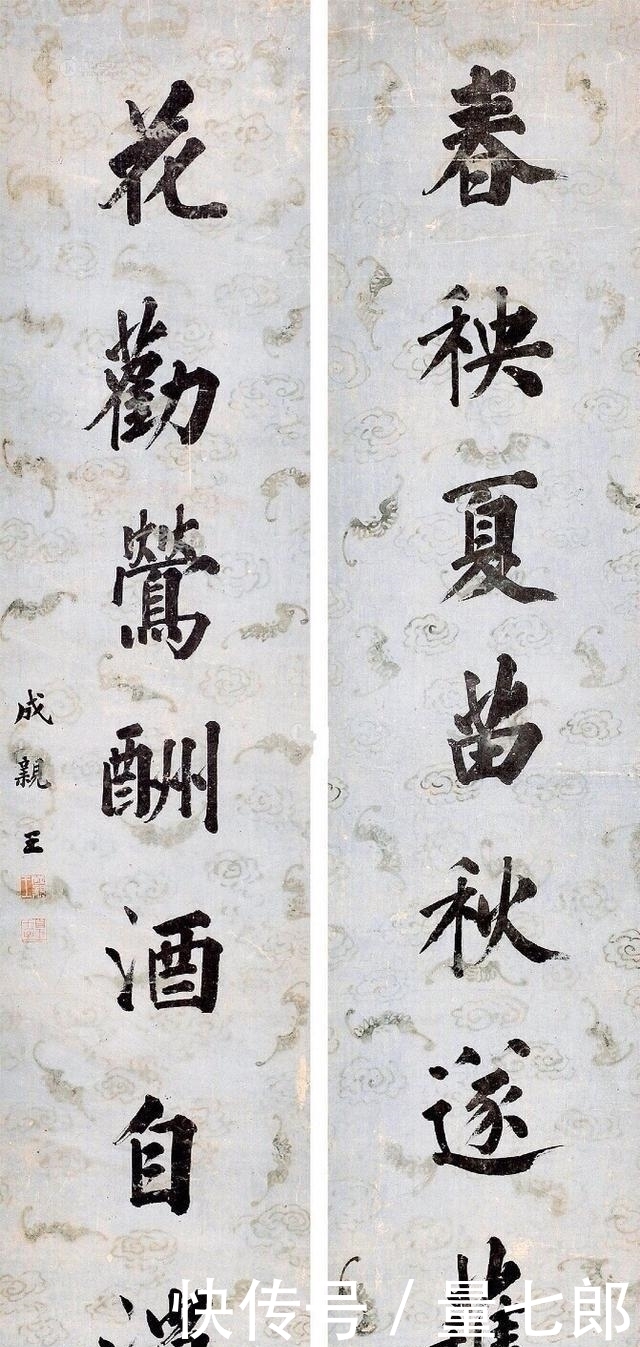 春秧夏苗秋遂
花勸鶯酬酒自
成親王
快传号 / 量七郎